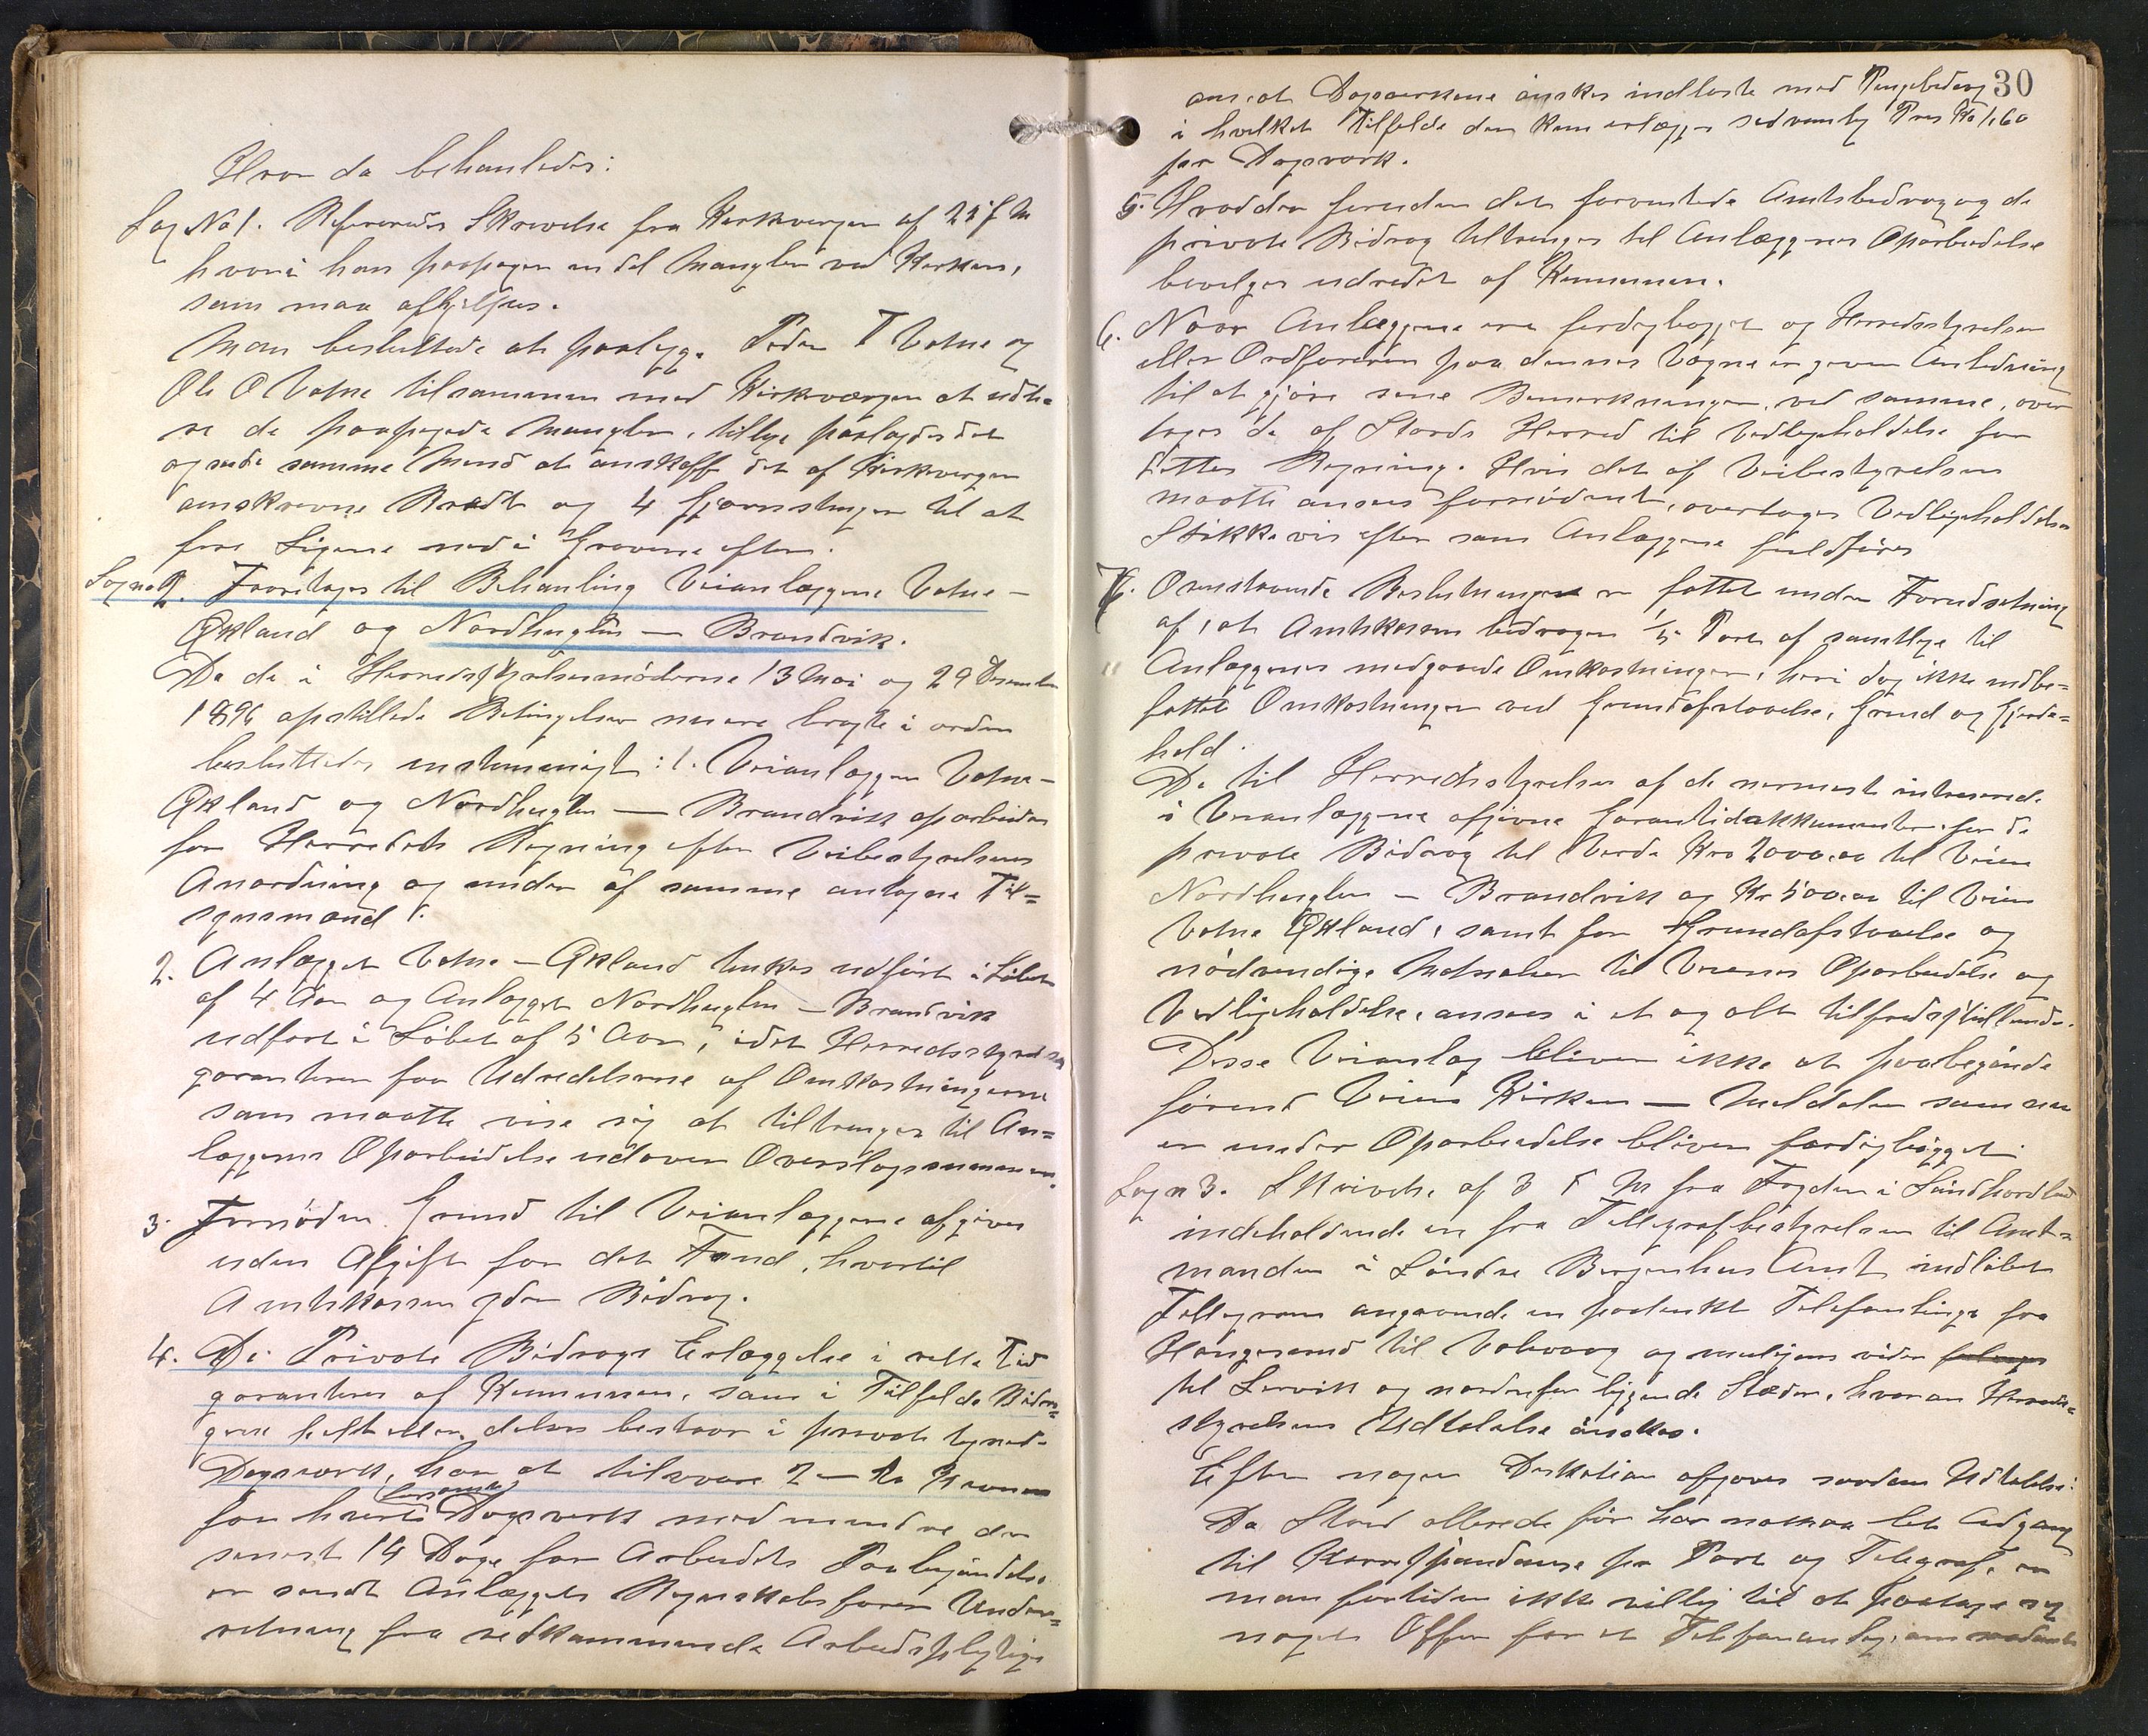 Hvor da behanledes:
Sag No 1. Refereredes Skrivelse fra Kirkevergen af 22 f M
hvori han paapeger en del Mangler ved Kirken,
som maa afhjelpes.
Man besluttede at paalegge Peder T Vatne og
Ole O Vatne tilsammen med Kirkeværgen at udbe-
re de paapegede Mangler, tillige paalagdes det
ogsaa samme Mænd at anskaffe det af Kirkevergen
omskrevne Brædt og 4 Jjernstenger til at
fire Ligene ned i Gravene efter.
Sag no 2. Foretages til Behanling Veianlæggene Vatne –
Økland og Nordhuglen — Brandvik.
Da de i Herredsstyrelsesmøderne 13 Mai og 29 Desember
1896 opstillede Betingelser nu ere bragte i orden
besluttedes enstemmigt: 1. Veianlæggen Vatne –
Økland og Nordhuglen — Brandvik oparbeides
for Herredets Regning efter Veibestyrelsens
Anordning og under af samme antagne Til=
synsmænd.
2. Anlægget Vatne – Økland tenkes udført i Løbet
af 4 Aar og Anlægget Nordhuglen – Brandvik
udført i Løbet af 5 Aar, idet Herredsstyrelsen
garanterer for Udredelserne af Omkostningerne
som maatte vise sig at tiltrenges til An=
læggenes Oparbeidelse udover Overslagssummen.
3. Fornøden Grund til Veianlæggene afgives
uden Afgift for det Fond, hvortil
Amtskassen yder Bidrag.
4. De Private Bidrags Erlæggelse i rette Tid
garanteres af Kommunen, som i Tilfelde Bidra-
gene helt eller delvis bestaar i private lignede
Dagsverk, har at tilsvare 2 – to Kroner
for hvert forsømt Dagsverk med mindre der
senest 14 Dage før Arbeidets Paabegyndelse
er sendt Anlæggets Regnskabsfører Under=
retning fra vedkommende Arbeidspligtige
30
om, at Dagsverkene ønskes indløste med Pengebidrag
i hvilket Tilfelde der kun erlægges sedvanlig Pris Kr 1,60
pr Dagsverk.
5. Hvad der foruden det forventede Amtsbidrag og de
private Bidrag tiltrenges til Anlæggenes Oparbeidelse
bevilges udredet af Kommunen.
6. Naar Anlæggene ere ferdigbygget og Herredsstyrelsen
eller Ordføreren paa dennes Vegne er given Anledning
til at gjøre sine Bemerkninger ved samme, over
tages de af Stords Herred til Vedligeholdelse for
dettes Regning. Hvis det af Veibestyrelsen
maatte ansees fornødent, overtages Vedligeholdelsen
Stykkevis efter som Anlæggene fuldføres
7. Ovenstaaende Beslutninger er fattet under Forudsetning
af, at Amtskassen bidrager 1/5 Part af samtlige til
Anlæggenes medgaaede Omkostninger, heri dog ikke indbe=
fattet Omkostninger ved Grundafstaaelse, Grind og Gjerde=
hold.
De til Herredsstyrelsen af de nermest interesserede
i Veianlæggene afgivne Garantidokkumenter for de
private Bidrag til Verdi Kro 2000.00 til Veien
Nordhuglen – Brandvik og Kr 500.00 til Veien
Vatne Økland, samt for Grundafstaaelse og
nødvendige Materialier til Veienes Oparbeidelse og
Vedligeholdelse, ansees i et og alt tilfredsstillende.
Disse Veianlæg bliver ikke at paabegynde
førend Veien Kirken — Meldalen som nu
er under Oparbeidelse bliver færdigbygget.
Sag n 3. Skrivelse af 3 d M fra Fogden i Søndhordland
indeholdende en fra Telegrafbestyrelsen til Amt=
manden i Søndre Bergenhus Amt indløbet
Tellegram angaaende en paatenkt Telefonlinje fra
Haugesund til Valevaag og muligens vider
til Lervik og nordenfor liggende Stæder, hvorom Herreds=
styrelsens Udtalelse ønskes.
Efter nogen Diskution afgaves saadan Udtalelse:
Da Stord allerede før har nokkaa let Adgang
til Korrespondanse pr Post og Telegraf, er
man fortiden ikke villig til at paatage sig
noget Offer for et Telefonanleg, om saadant